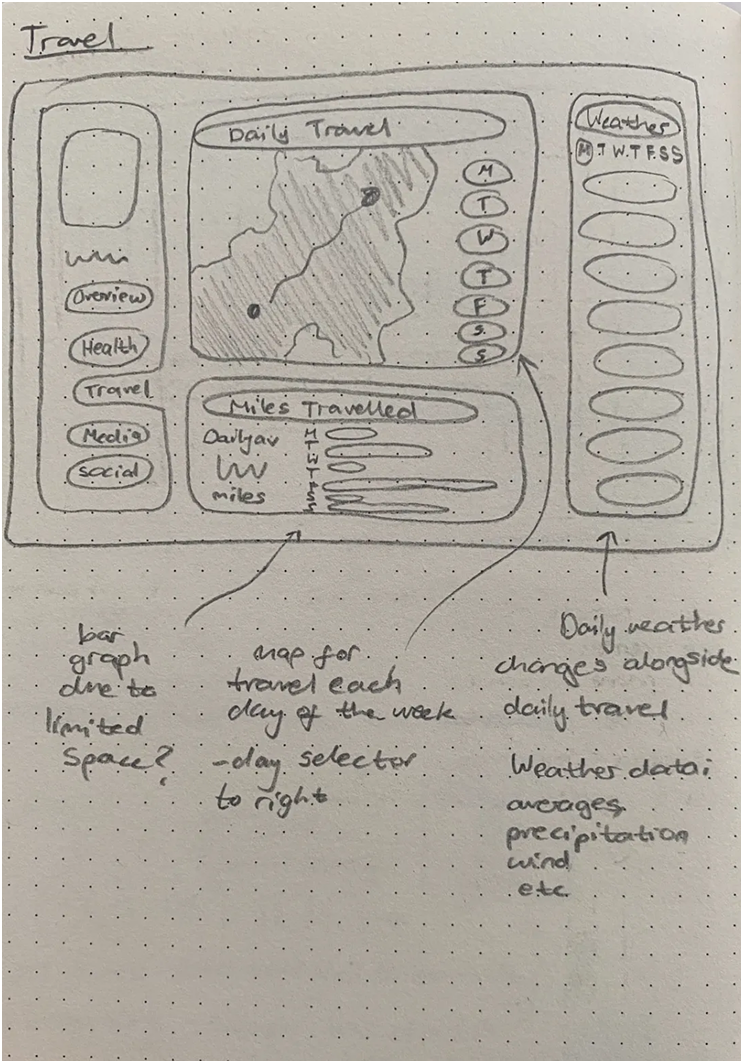 Travel
Overview
Health
Travel
Media
Social
Daily Travel
M
T
W
T
F
S
S
Miles Travelled
Daily av
miles
M
T
W
T
F
S
S
Weather
M T W T F S S
bar
graph
due to
limited
space?
map for
travel each
day of the week
- day selector
to right
Daily weather
changes alongside
daily travel
Weather data:
averages
precipitation
wind
etc.